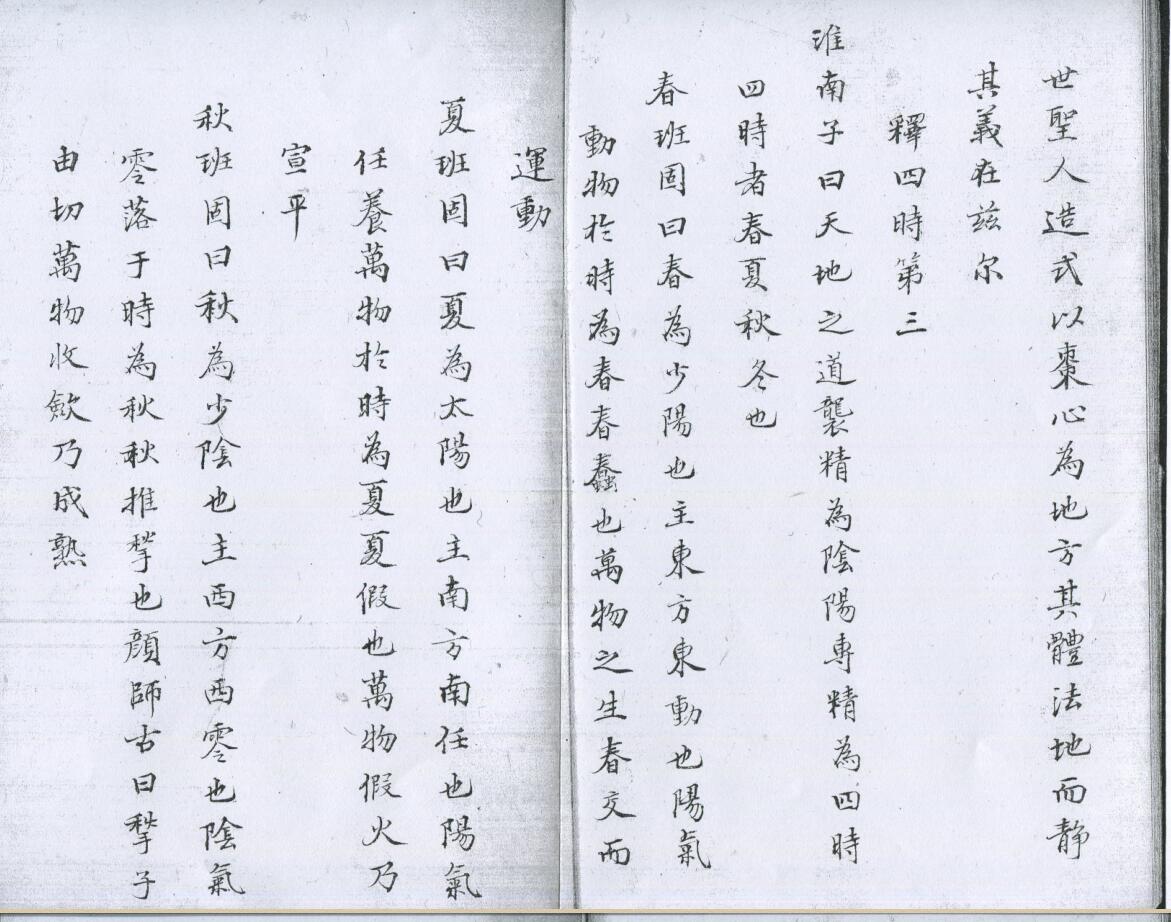 世聖人造式以棗心為地方其體法地而静
其義在兹尔
釋四時第三
淮南子曰天地之道襲精為陰陽專精為四時
四時者春夏秋冬也
春班固曰春為少陽也主東方東動也陽氣
動物扵時為春春蠢也萬物之生春交而
運動
夏班固曰夏為太陽也主南方南任也陽氣
任養萬物扵時為夏夏假也萬物假火乃
宣平
秋班固曰秋為少陰也主西方西零也陰氣
零落于時為秋秋推揫也顔師古曰揫子
由切萬物收歛乃成熟